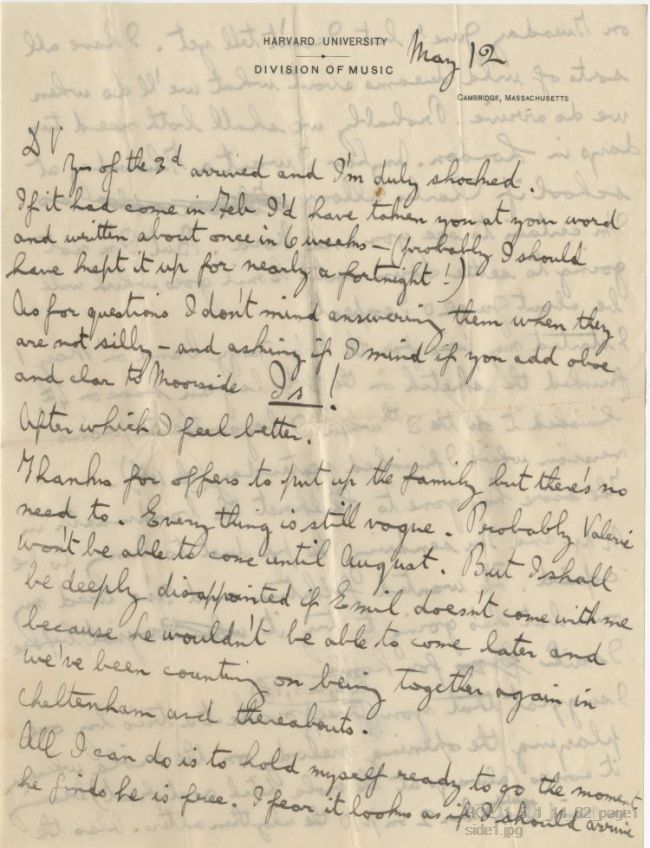 HARVARD UNIVERSITY
DIVISION OF MUSIC
May 12
CAMBRIDGE, MASSACHUSETTS
D V
Yrs of the 3d arrived and I'm duly shocked.
If it had come in Feb I'd have taken you at your word
and written about once in 6 weeks – (probably I should
have kept it up for nearly a fortnight!)
As for questions I don't mind answering them when they
are not silly – and asking if I mind if you add oboe
and clar to Moorside Is!
After which I feel better.
Thanks for offers to put up the family but there's no
need to. Everything is still vague. Probably Valerie
won't be able to come until August. But I shall
be deeply disappointed if Emil doesn't come with me
because he wouldn't be able to come later and
we've been counting on being together again in
Cheltenham and thereabouts.
All I can do is to hold myself ready to go the moment
he finds he is free. I fear it looks as if I should arrive
page1
side1.jpg